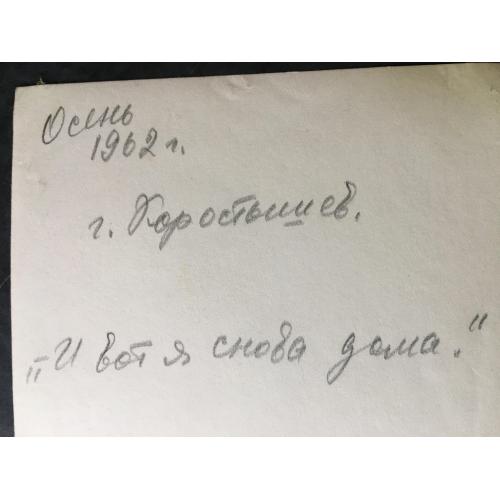 Осень
1962 г.
г. Коростышев.
„И вот я снова дома."